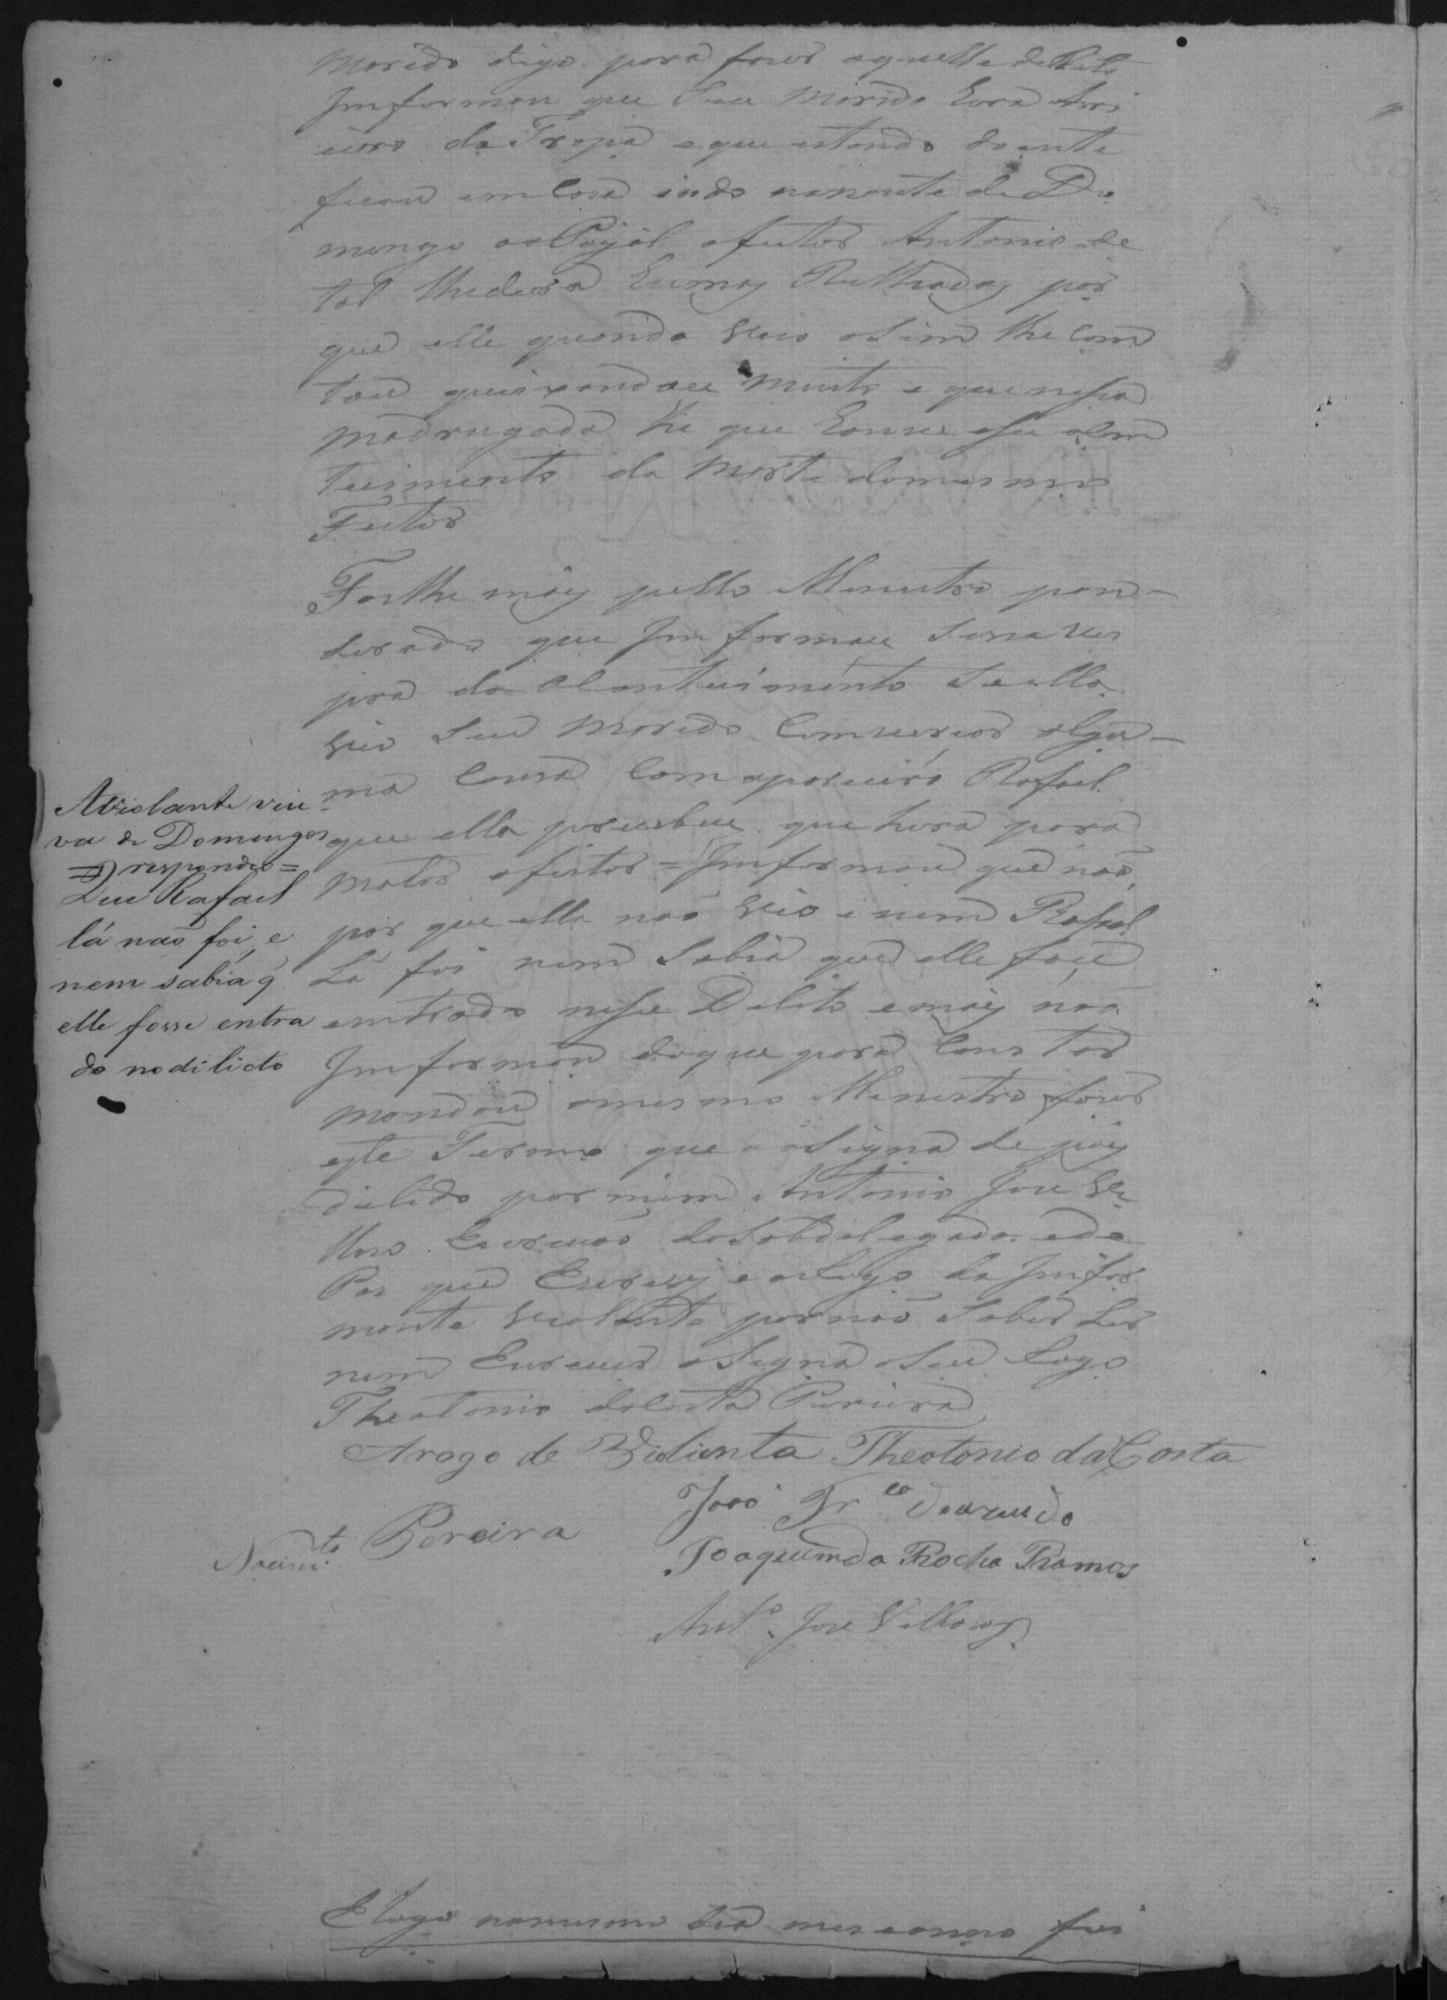 Marido digo para fazer aquelle delito
Imformou que Seu Marido hera Arri
eiro da Tropa e que estando doente
ficou em Casa indo na noute de Do
mingo ao Payol o feitor Antonio de
tal lhe dera humas Relhadas por
que elle quando veio asim lhe Com
tou queixandoce muito e que nesa
madrugada he que houve ese acom
tesimento da Morte do mesmo
Feitor
Foilhe mais pello Menistro pon-
derado que Imformace Se na ves
pra do acontesimento Se ella
vio Seu Marido Comversar algu-
ma Cousa Com o parceiro Rafael
que ella persebece que hera para
matar o feitor = Imformou que não
por que ella não vio e nem Rafael
Lá foi nem Sabia que elle foce
emtrado nese Delito e mais não
Imformou do que para Constar
mandou o mesmo Menistro fazer
este Termo que asigna de pois
de lido por mim Antonio Joze Ve
llozo Escrivão do Sobdelegado e do
Paz que Escrevy e a Rogo da Imfor
mante Violante por não Saber Ler
nem Escrever asigna a Seu Rogo
Theotonio da Costa Pereira
Arogo de Violanta Theotonio da Costa
Pereira
João Fr.co de Azevedo
Nacim.to
Joaquim da Rocha Ramos
Ant.o Joze Vellozo
A Violante viu
va de Domingos
respondeo =
Que Rafael
lá não foi, e
nem sabia q̃
elle fosse entra
do no dilicto
E logo no mesmo dia mes e anno foi